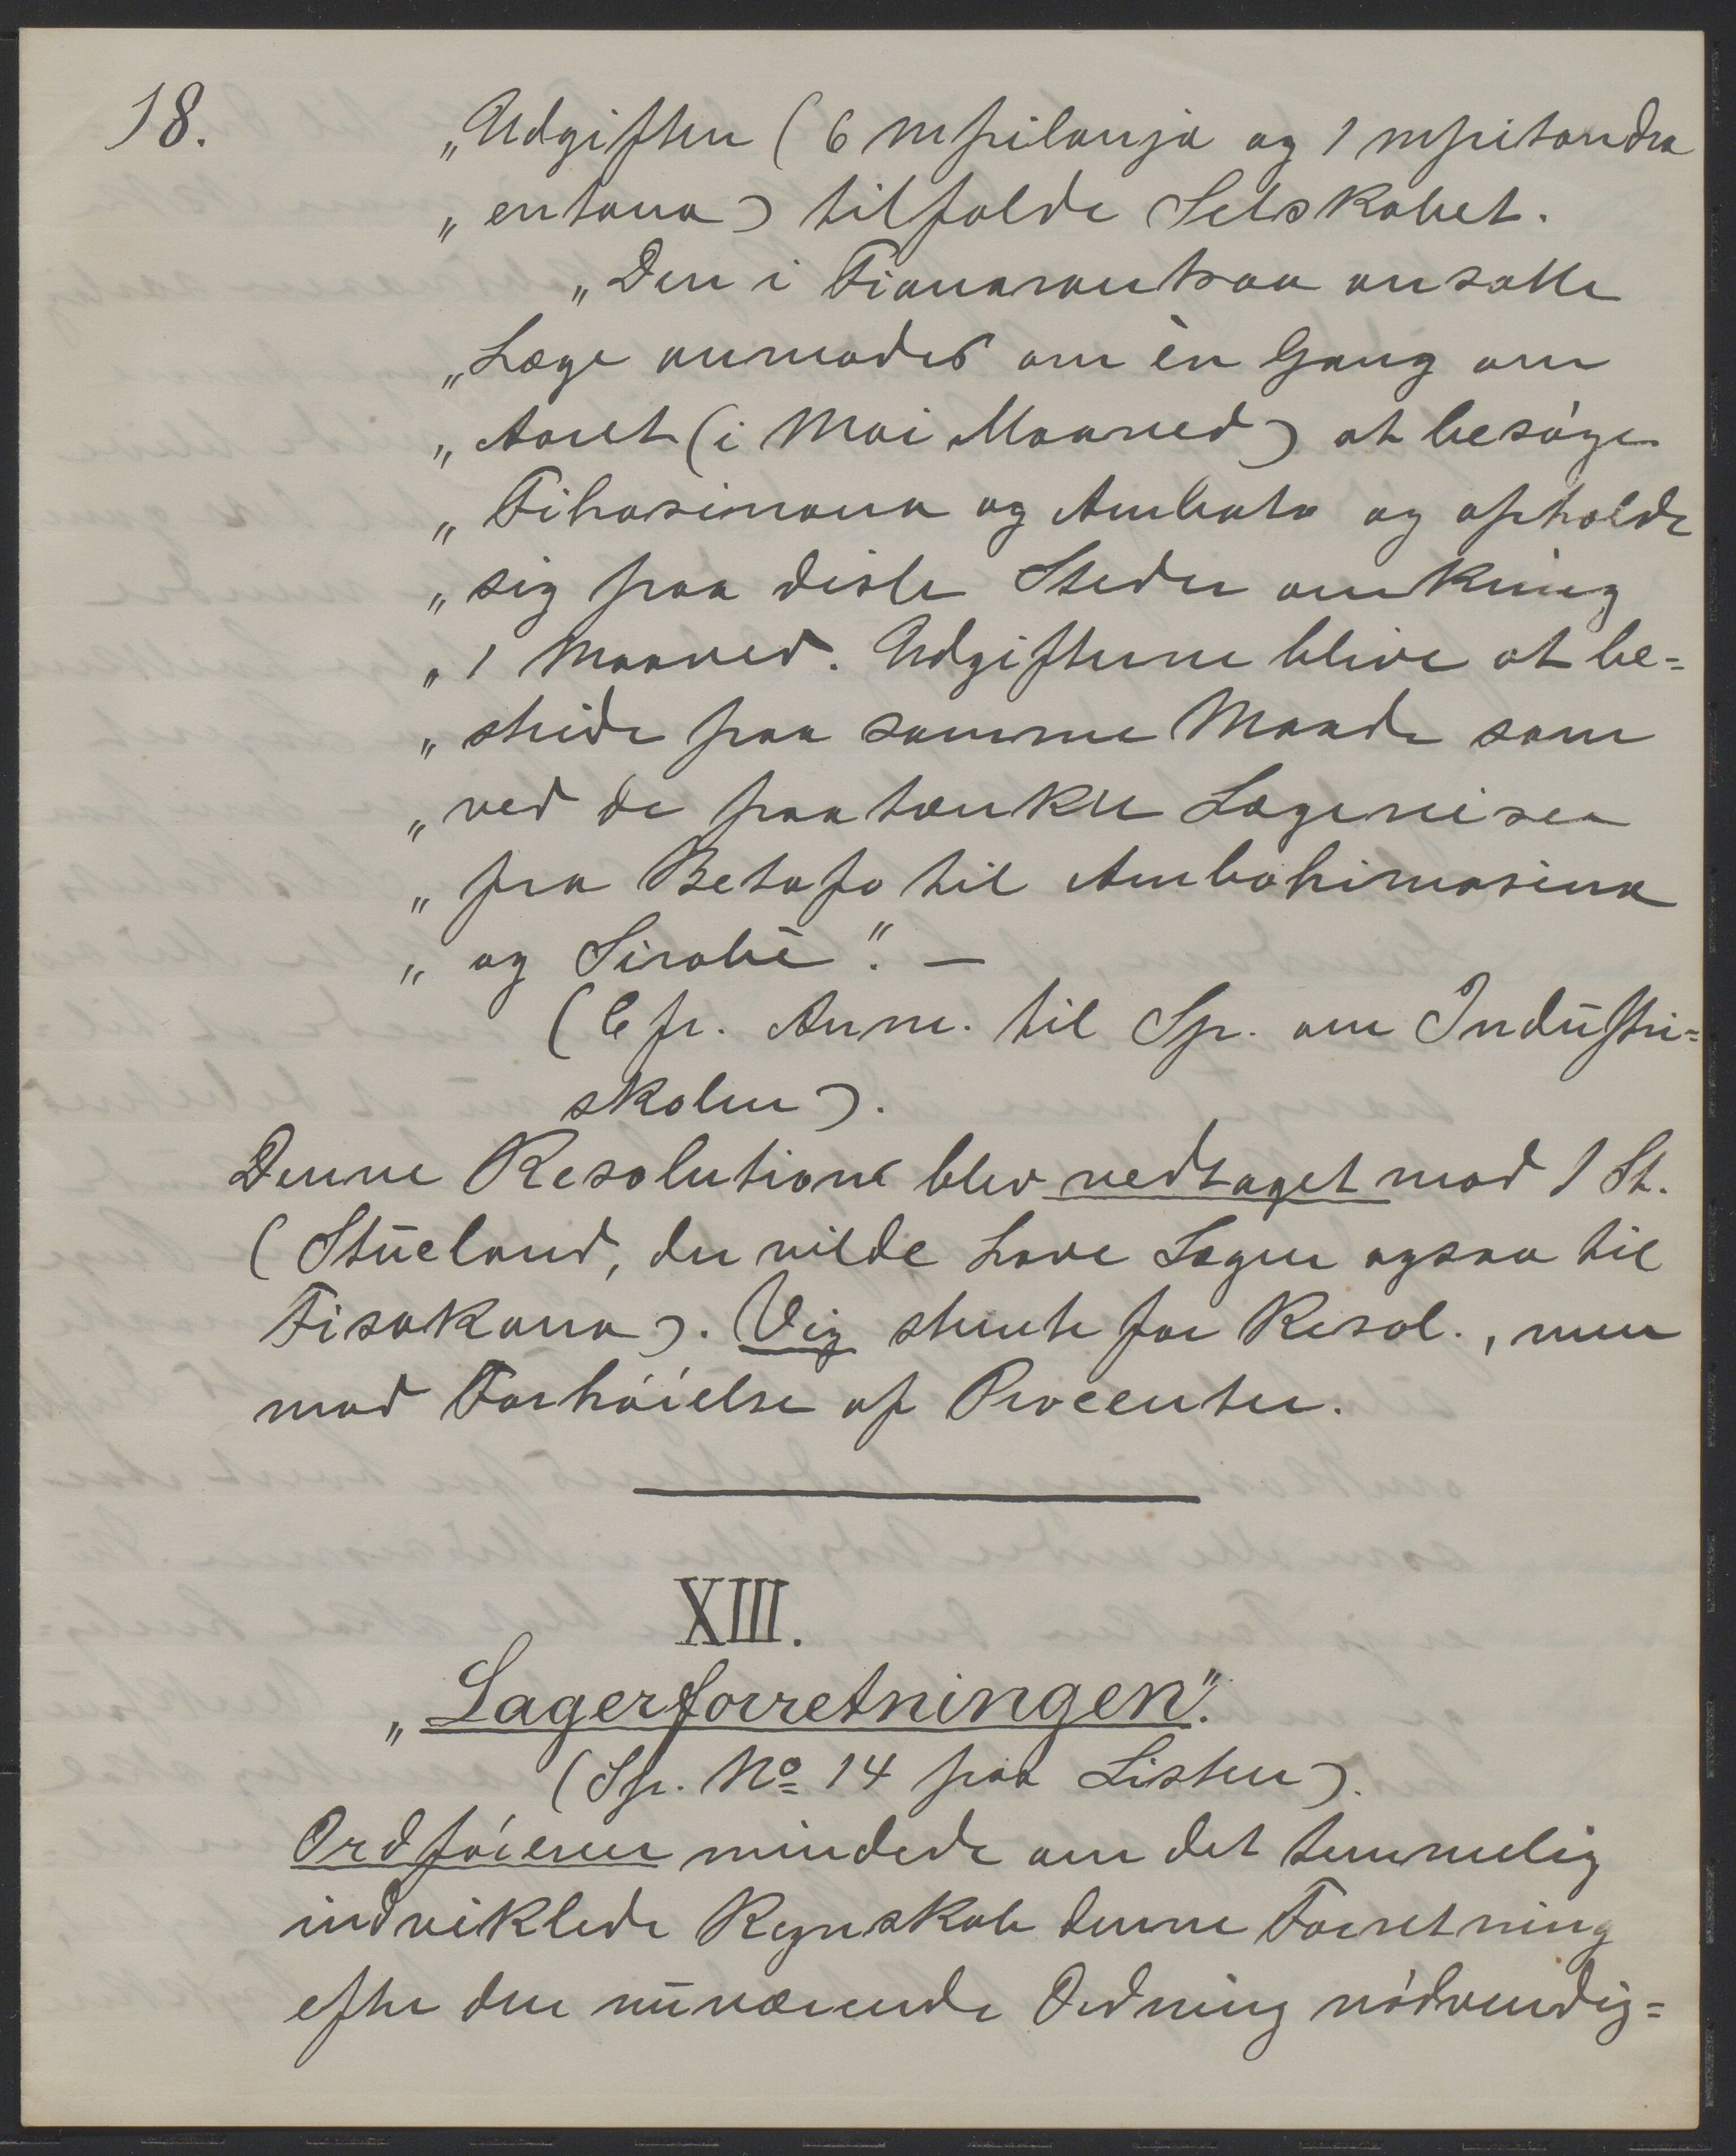 18.
„Udgiften (6 mpilanja og 1 mpitondra
„entana) tilfalde Selskabet.
„Den i Fianarantsoa ansatte
„Læge anmodes om èn Gang om
„Aaret (i Mai Maaned) at besøge
„Fihasinana og Ambato og opholde
„sig paa disse Steder omkring
„1 Maaned. Udgifterne blive at be=
„stride paa samme Maade som
„ved de paatænkte Lægereiser
„fra Betafo til Ambohimasina
„og Sirabè". —
(Cfr. Anm. til Sp. om Industri=
skolen).
Denne Resolution blev vedtaget mod 1 St.
(Stueland, der vilde have Lægen ogsaa til
Fisakana). Vig stemte for Resol., men
mod Forhøielse af Procenter.
XIII.
„Lagerforretningen".
(Sp. No 14 paa Listen).
Ordføreren mindede om det temmelig
indviklede Regnskab denne Forretning
efter den nuværende Ordning nødvendig=